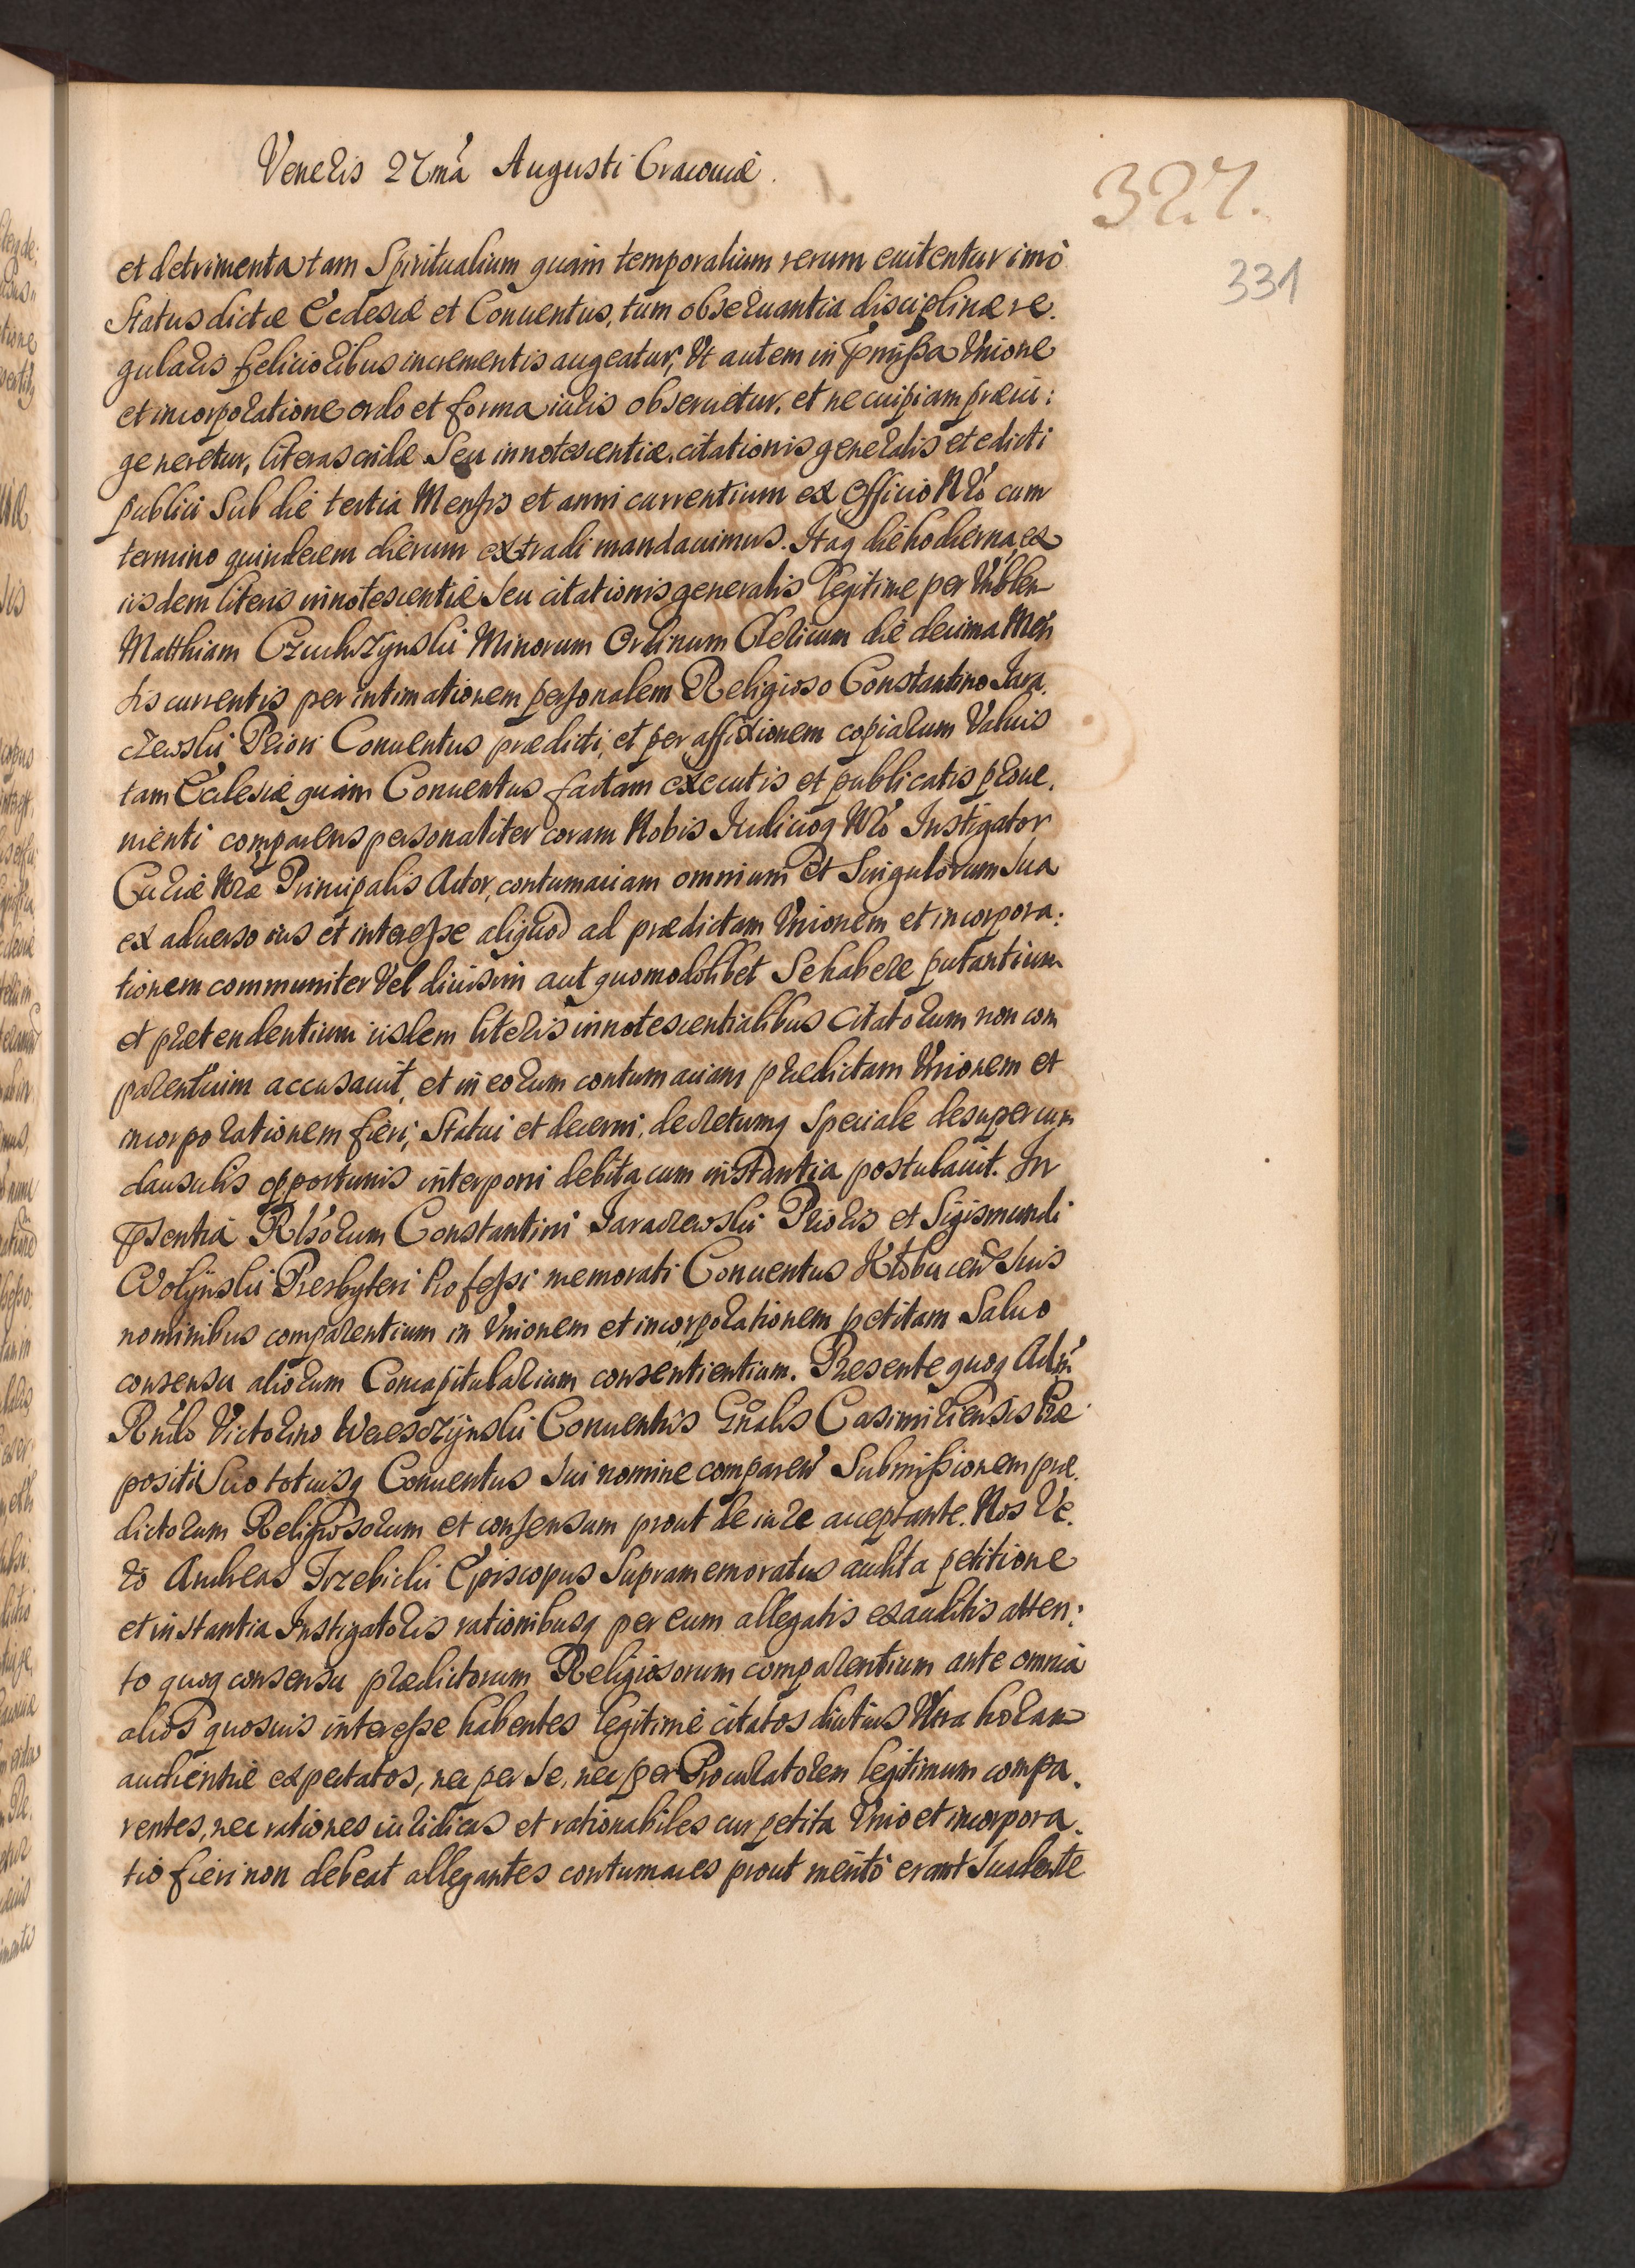 Veneris 27ma Augusti Cracouiæ.
327.
331
et detrimenta tam Spiritualium quam temporalium rerum euitentur imò
Status dictæ Ecclesiæ et Conuentus, tum obseruantia disciplinæ re.
gularis felicioribus incrementis augeatur, Vt autem in pmissa Vnione
et incorporatione ordo et forma iuris obseruetur, et ne cuipiam præiu:
generetur, literas Seu innotescentiæ, citationis generalis et edicti
publici Sub die tertia Mensis et anni currentium ex Officio Nro cum
termino quindecem dierum extradi mandauimus. Itaq die hodierna ex
iisdem literis innotescentiæ Seu citationis generalis legitime per
Matthiam Czuchrzynski Minorum Ordinum Clericum die decima Men
sis currentis per intimationem personalem Religioso Constantino Jara.
czewski Priori Conuentus prædicti, et per affixionem copiarum Valuis
tam Ecclesiæ quam Conuentus factam executis et publicatis proue.
nienti comparens personaliter coram Nobis Iudicioq Nro Instigator
Curiæ Nræ Principalis Actor, contumaciam omnium et Singulorum Sua
ex aduerso ius et interesse aliquod ad prædictam Vnionem et incorpora:
tionem communiter Vel diuisim aut quomodolibet Se habere putantium
et prætendentium iisdem literis innotescentialibus citatorum non com
parentium accusauit, et in eorum contumaciam prædictam Vnionem et
incorporationem fieri, Statui et decerni, decretumq Speciale desuper cum
clausulis opportunis interponi debita cum instantia postulauit. In
psentia Rlsorum Constantini Jaraczewski Prioris et Sigismundi
Wolynski Presbyteri Professi memorati Conuentus Kłobucen Suis
nominibus comparentium in Vnionem et incorporationem petitam Saluo
consensu aliorum Concapitularium consentientium. Præsente quoq Adm
Rndo Victorino Wereszczynski Conuentus Gnalis Casimiriensis Præ
positi Suo totiusq Conuentus Sui nomine comparen Submissionem præ.
dictorum Religiosorum et consensum prout de iure acceptante. Nos Ve.
ro Andreas Trzebicki Episcopus Supramemoratus audita petitione
et instantia Instigatoris rationibusq per eum allegatis exauditis atten:
to quoq consensu prædictorum Religiosorum comparentium ante omnia
alios quosuis interesse habentes legitime citatos diutius Vltra horam
audientiæ expectatos, nec per Se, nec per Procuratorem legitimum compa.
rentes, nec rationes iuridicas et rationabiles cur petita Vnio et incorpora.
tio fieri non debeat allegantes contumaces prout merito erant Suadente